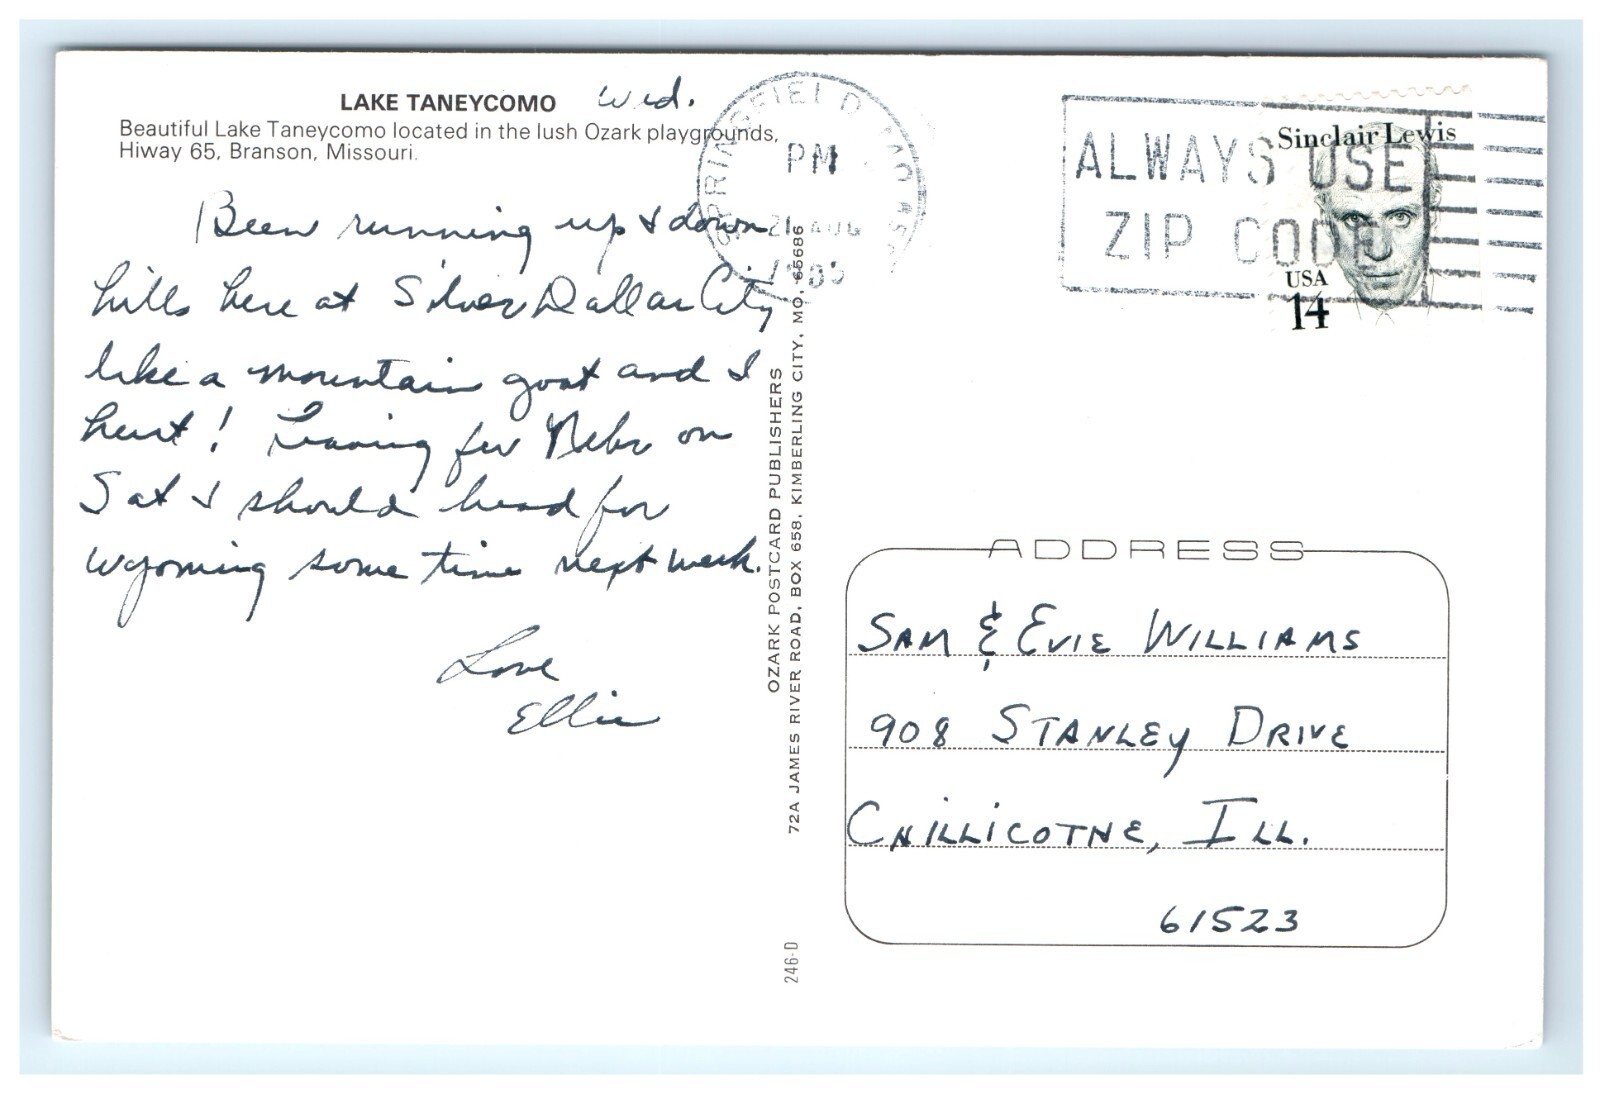 LAKE TANEYCOMO Wed.
Beautiful Lake Taneycomo located in the lush Ozark playgrounds,
Hiway 65, Branson, Missouri.
Been running up & down
hills here at Silver Dollar City
like a mountain goat and I
hurt! Leaving for Nebr on
Sat & should head for
Wyoming some time next week.
Love
Ellie
OZARK POSTCARD PUBLISHERS
72A JAMES RIVER ROAD, BOX 658, KIMBERLING CITY, MO. 65686
246-D
SPRINGFIELD MO
PM
21 AUG
1985
ALWAYS USE
ZIP CODE
Sinclair Lewis
USA
14
ADDRESS
SAM & EVIE WILLIAMS
908 STANLEY DRIVE
CHILLICOTHE, ILL.
61523